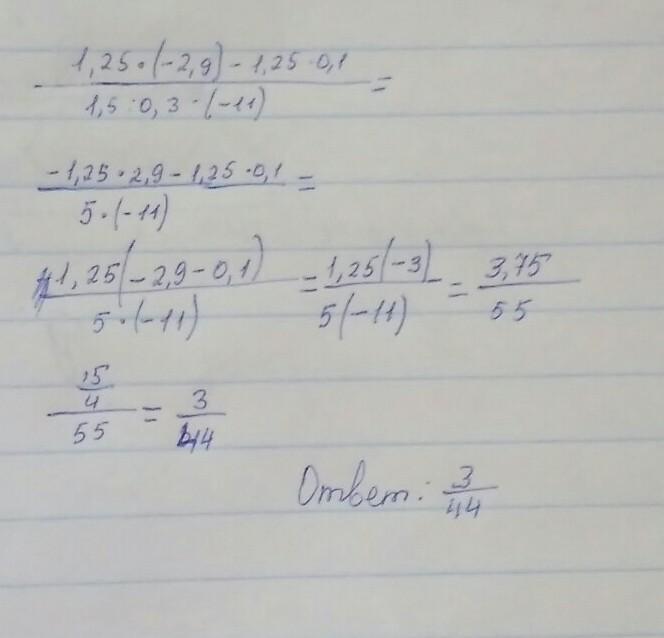 1,25·(-2,9) - 1,25·0,1 =
1,5:0,3·(-11)
-1,25·2,9-1,25·0,1 =
5·(-11)
1,25(-2,9-0,1) = 1,25(-3) = 3,75
5·(-11) 5(-11) 55
15
4 = 3
55 44
Ответ: 3
44